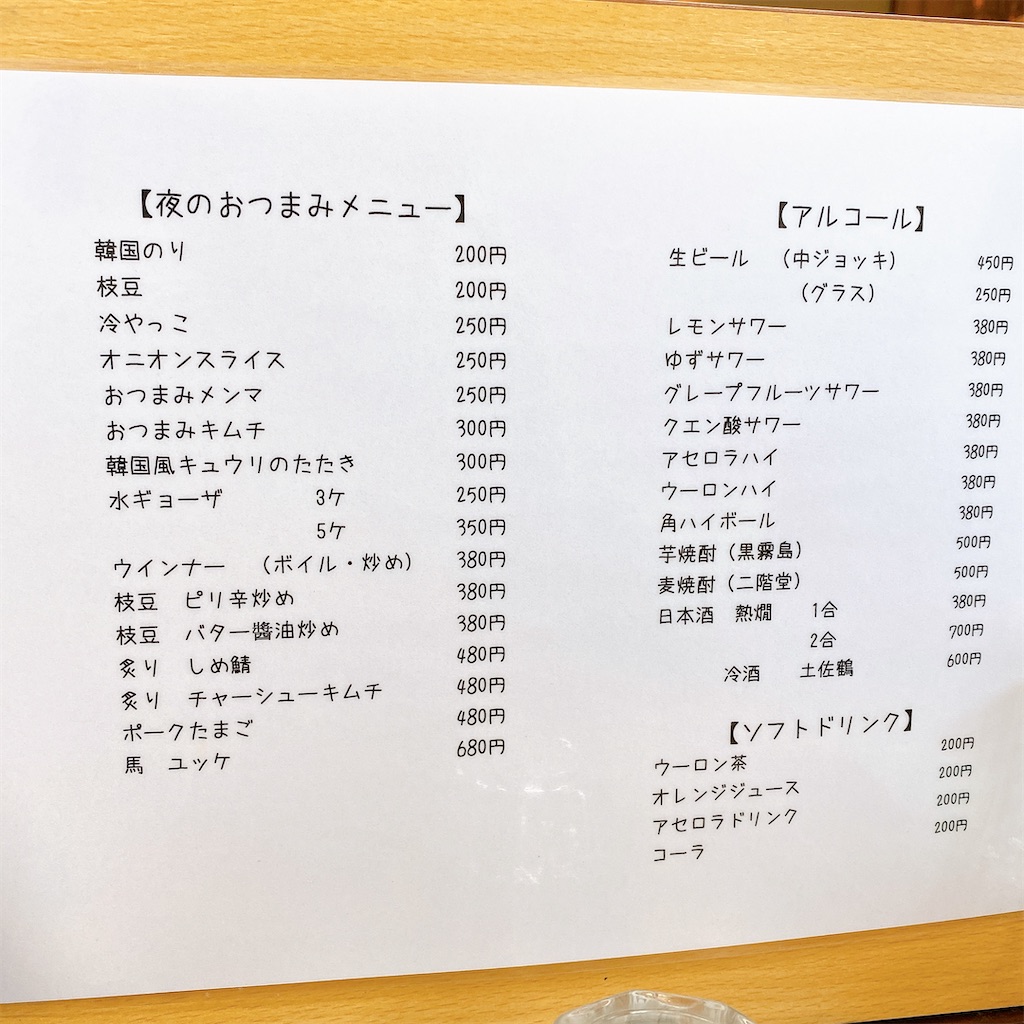 【夜のおつまみメニュー】
韓国のり 200円
枝豆 200円
冷やっこ 250円
オニオンスライス 250円
おつまみメンマ 250円
おつまみキムチ 300円
韓国風キュウリのたたき 300円
水ギョーザ 3ケ 250円
5ケ 350円
ウインナー （ボイル・炒め） 380円
枝豆 ピリ辛炒め 380円
枝豆 バター醬油炒め 380円
炙り しめ鯖 480円
炙り チャーシューキムチ 480円
ポークたまご 480円
馬 ユッケ 680円
【アルコール】
生ビール （中ジョッキ） 450円
（グラス） 250円
レモンサワー 380円
ゆずサワー 380円
グレープフルーツサワー 380円
クエン酸サワー 380円
アセロラハイ 380円
ウーロンハイ 380円
角ハイボール 380円
芋焼酎（黒霧島） 500円
麦焼酎（二階堂） 500円
日本酒 熱燗 1合 380円
2合 700円
冷酒 土佐鶴 600円
【ソフトドリンク】
ウーロン茶 200円
オレンジジュース 200円
アセロラドリンク 200円
コーラ 200円